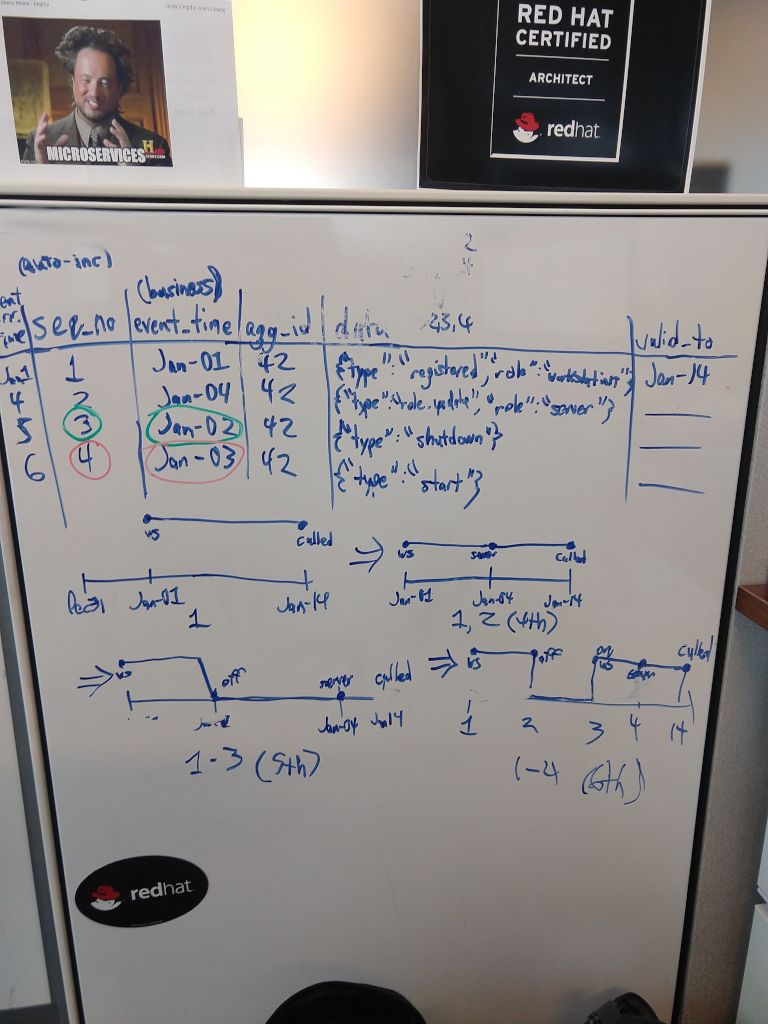 RED HAT
CERTIFIED
ARCHITECT
redhat
MICROSERVICES
H
(auto-inc)
(business)
2
4
seq_no event_time agg_id data 2,3,4 valid_to
Jan 1 1 Jan-01 42 {"type":"registered","role":"workstation"} Jan-14
4 2 Jan-04 42 {"type":"role_update","role":"server"}
5 3 Jan-02 42 {"type":"shutdown"}
6 4 Jan-03 42 {"type":"start"}
ws culled
Dec31 Jan-01 Jan-14
1
⇒ ws server culled
Jan-01 Jan-04 Jan-14
1, 2 (4th)
⇒ ws off server culled
Jan-04 Jan14
1-3 (5th)
⇒ ws off on ws server culled
1 2 3 4 14
1-4 (6th)
redhat